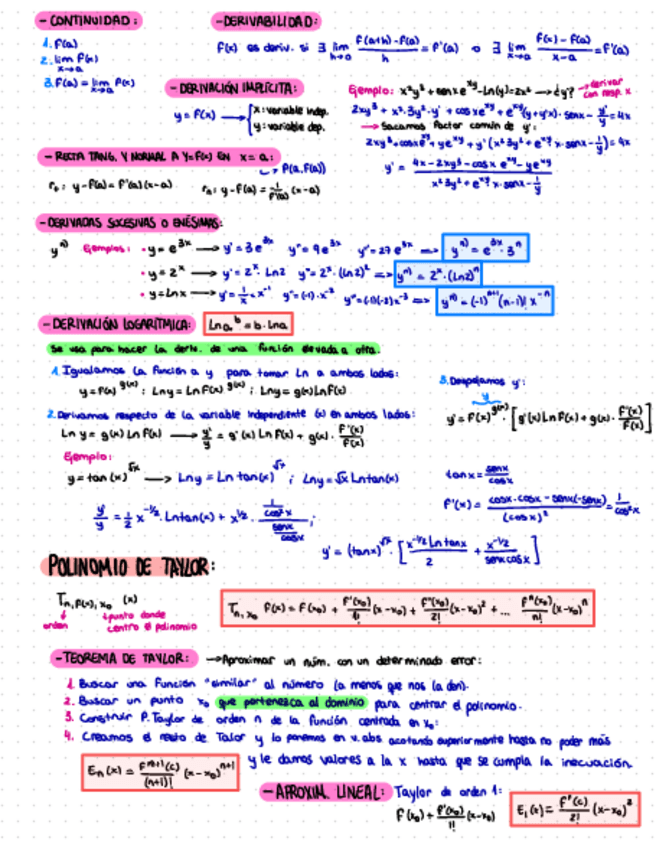 - CONTINUIDAD:
1. F(a)
2. lim F(x)
x→a
3. F(a) = lim F(x)
x→a
- DERIVABILIDAD:
F(x) es deriv. si ∃ lim h→0 (F(a+h)-F(a))/h = F'(a) o ∃ lim x→a (F(x)-F(a))/(x-a) = F'(a)
- DERIVACIÓN IMPLÍCITA:
y = F(x) → { x: variable indep.
y: variable dep.
Ejemplo: x²y³ + senx e^xy - Ln(y) = 2x² → ¿y'? → derivar con resp. x
2xy³ + x²·3y²·y' + cosx e^xy + e^xy (y+y'x)·senx - y'/y = 4x
→ Sacamos factor común de y':
y' = (4x - 2xy³ - cosx e^xy - y e^xy)/(x²3y² + e^xy x·senx - 1/y)
- RECTA TANG. Y NORMAL A Y=F(x) EN x=a:
→ P(a, F(a))
r₀: y-F(a) = F'(a)(x-a)
rₙ: y-F(a) = 1/F'(a) (x-a)
- DERIVADAS SUCESIVAS O ENÉSIMAS:
yⁿ⁾ Ejemplos: · y = e^3x → y' = 3e^3x y'' = 9e^3x y''' = 27e^3x => yⁿ⁾ = e^3x · 3ⁿ
· y = 2ˣ → y' = 2ˣ · Ln2 y'' = 2ˣ · (Ln2)² => yⁿ⁾ = 2ˣ · (Ln2)ⁿ
· y = Lnx → y' = 1/x = x⁻¹ y'' = (-1)·x⁻² y''' = (-1)(-2)x⁻³ => yⁿ⁾ = (-1)ⁿ⁺¹ (n-1)! x⁻ⁿ
- DERIVACIÓN LOGARÍTMICA: Ln aᵇ = b·Ln a
Se usa para hacer la deriv. de una función elevada a otra.
1. Igualamos la función a y para tomar Ln a ambos lados:
y = F(x)^g(x) ; Lny = Ln F(x)^g(x) ; Lny = g(x) Ln F(x)
2. Derivamos respecto de la variable independiente (x) en ambos lados:
Ln y = g(x) Ln F(x) → y'/y = g'(x) Ln F(x) + g(x) · F'(x)/F(x)
3. Despejamos y':
y
y' = F(x)^g(x) · [g'(x) Ln F(x) + g(x) · F'(x)/F(x)]
Ejemplo:
y = tan(x)^√x → Lny = Ln tan(x)^√x ; Lny = √x Ln tan(x)
tanx = senx/cosx
F'(x) = (cosx·cosx - senx(-senx))/(cosx)² = 1/cos²x
y'/y = 1/2 x^-1/2 · Ln tan(x) + x^1/2 · (1/cos²x)/(senx/cosx) ;
y' = (tanx)^√x · [(x^-1/2 Ln tanx)/2 + x^-1/2/(senx cosx)]
POLINOMIO DE TAYLOR:
Tn, F(x), x₀ (x)
orden
punto donde
centro el polinomio
Tn, x₀ F(x) = F(x₀) + F'(x₀)/1! (x-x₀) + F''(x₀)/2! (x-x₀)² + ... Fⁿ(x₀)/n! (x-x₀)ⁿ
- TEOREMA DE TAYLOR: → Aproximar un núm. con un determinado error:
1. Buscar una función "similar" al número (a menos que nos la den).
2. Buscar un punto x₀ que pertenezca al dominio para centrar el polinomio.
3. Construir P. Taylor de orden n de la función centrada en x₀:
4. Creamos el resto de Talor y lo ponemos en v. abs acotando superiormente hasta no poder más
Eₙ(x) = Fⁿ⁺¹(c)/(n+1)! (x-x₀)ⁿ⁺¹
y le damos valores a la x hasta que se cumpla la inecuación.
- APROXIM. LINEAL: Taylor de orden 1:
F(x₀) + F'(x₀)/1! (x-x₀)
E₁(x) = F''(c)/2! (x-x₀)²